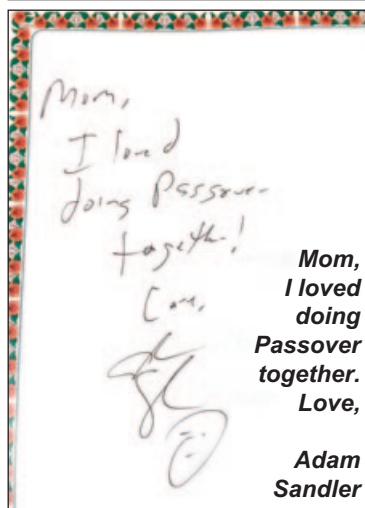 Mom,
I loved
doing Passover
together!
Love,
Mom,
I loved
doing
Passover
together.
Love,
Adam
Sandler